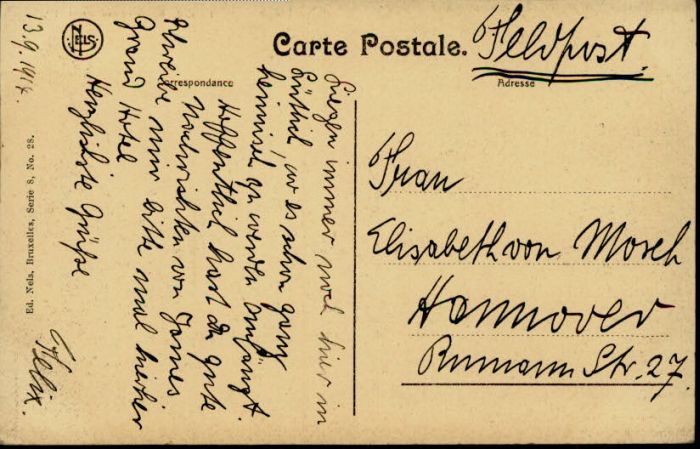 NELS
Carte Postale.
Feldpost.
Correspondance
Adresse
13.9.1914.
Liegen immer noch hier in
Lüttich, wo es schon ganz
heimisch zu werden anfängt.
Hoffentlich hast du gute
Nachrichten von James
Schreibe mir bitte mal hierher
Grand Hotel
Herzlichste Grüße
Felix.
Frau
Elisabeth von
Hannover
Rumann Str. 27.
Ed. Nels, Bruxelles, Serie 8, No. 28.